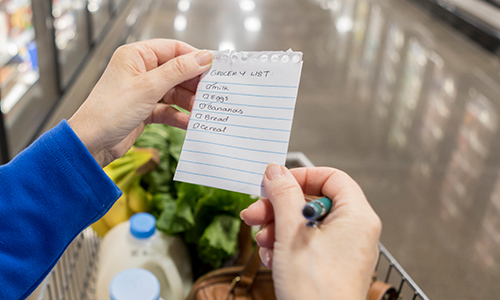 GROCERY LIST
☐ Milk
☐ Eggs
☐ Bananas
☐ Bread
☐ Cereal